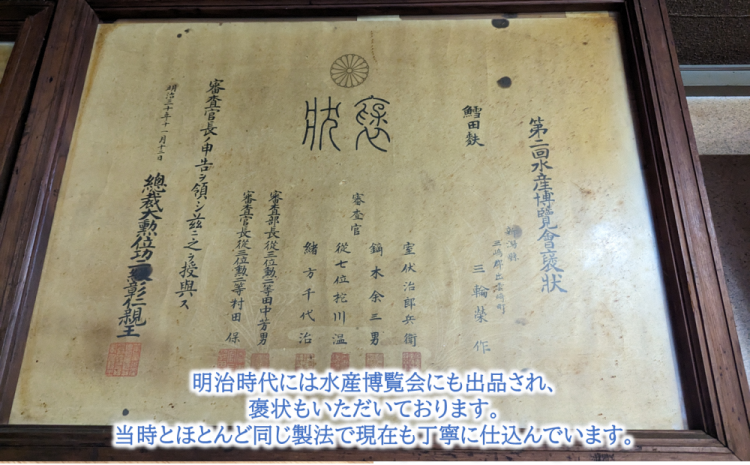 第二回水産博覽會褒狀
三嶋郡出雲崎町
三輪榮作
鱈田麩
褒狀
審査官
室伏治郎兵衛
鏑木余三男
從七位松川温
緒方千代治
審査部長從三位勲二等田中芳男
審査官長從三位勲二等村田保
審査官長ノ申告ヲ領シ茲ニ之ヲ授與ス
明治三十年十一月十二日
總裁大勲位功二彰仁親王
明治時代には水産博覧会にも出品され、
褒状もいただいております。
当時とほとんど同じ製法で現在も丁寧に仕込んでいます。